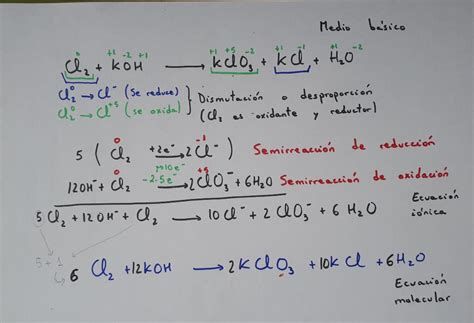 Medio básico
0 +1 -2 +1 +1 +5 -2 +1 -1 +1 -2
Cl₂ + KOH ⟶ KClO₃ + KCl + H₂O
Cl₂⁰ → Cl⁻ (se reduce)
Cl₂⁰ → Cl⁺⁵ (se oxida)
} Dismutación o desproporción
(Cl₂ es oxidante y reductor)
0 -1
5 ( Cl₂ +2e⁻⟶ 2Cl⁻ ) Semirreacción de reducción
0 -10e⁻ +5
12OH⁻ + Cl₂ -2.5e⁻⟶ 2ClO₃⁻ + 6H₂O Semirreacción de oxidación
5Cl₂ + 12OH⁻ + Cl₂ ⟶ 10Cl⁻ + 2ClO₃⁻ + 6H₂O
Ecuación
iónica
5+1
6 Cl₂ + 12KOH ⟶ 2KClO₃ + 10KCl + 6H₂O
Ecuación
molecular